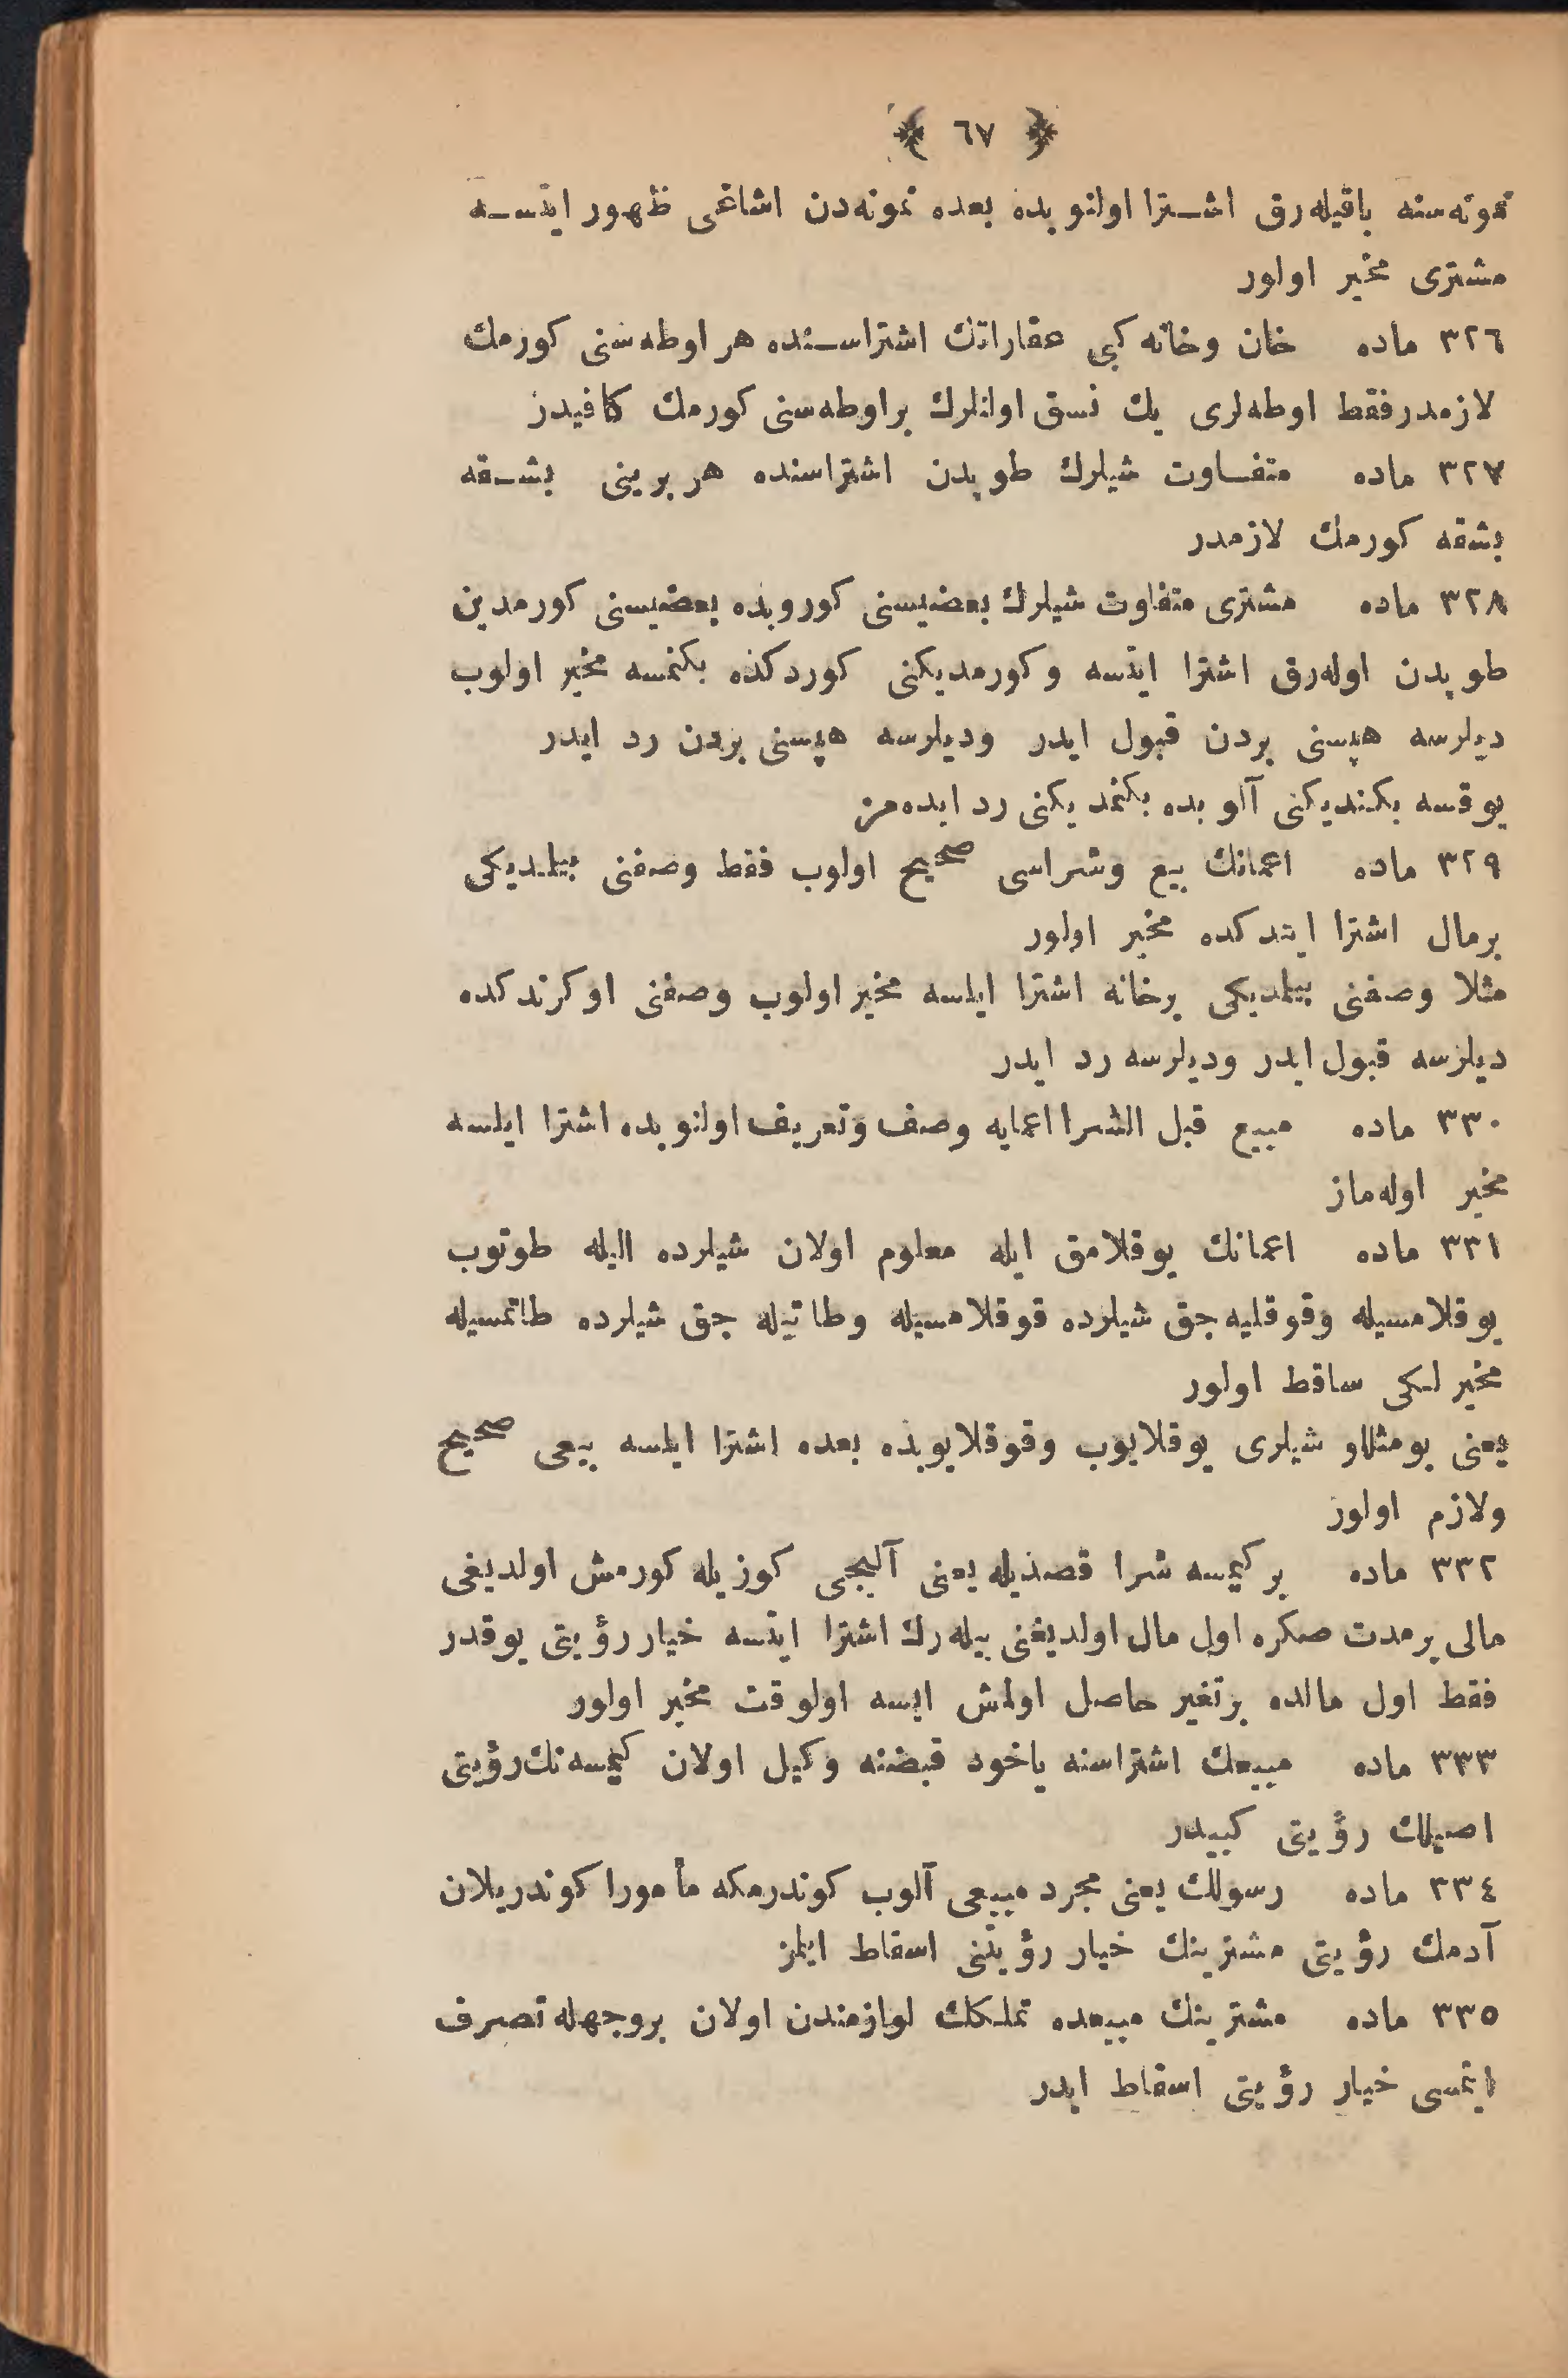 ﴿ ٦٧ ﴾
نمونه‌سنه باقیله‌رق اشترا اولنوبده بعده نمونه‌دن اشاغی ظهور ایتسه
مشتری مخیر اولور
٣٢٦ ماده خان وخانه کبی عقاراتك اشتراسنده هر اوطه‌سنی کورمك
لازمدر فقط اوطه‌لری یك نسق اولانلرك براوطه‌سنی کورمك کافیدر
٣٢٧ ماده متفاوت شیلرك طوپدن اشتراسنده هر برینی بشقه
بشقه کورمك لازمدر
٣٢٨ ماده مشتری متفاوت شیلرك بعضیسنی کوروبده بعضیسنی کورمدین
طوپدن اوله‌رق اشترا ایتسه وکورمدیکنی کوردکده بکنمسه مخیر اولوب
دیلرسه هپسنی بردن قبول ایدر ودیلرسه هپسنی بردن رد ایدر
یوقسه بکندیکنی آلوبده بکنمدیکنی رد ایده‌مز
٣٢٩ ماده اعمانك بیع وشراسی صحیح اولوب فقط وصفنی بیلمدیکی
برمال اشترا ایتدکده مخیر اولور
مثلا وصفنی بیلمدیکی برخانه اشترا ایلسه مخیر اولوب وصفنی اوکرندکده
دیلرسه قبول ایدر ودیلرسه رد ایدر
٣٣٠ ماده مبیع قبل الشرا اعمایه وصف وتعریف اولنوبده اشترا ایلسه
مخیر اوله‌ماز
٣٣١ ماده اعمانك یوقلامق ایله معلوم اولان شیلرده الیله طوتوب
یوقلامسیله وقوقلیه‌جق شیلرده قوقلامسیله وطاتیله‌جق شیلرده طاتمسیله
مخیرلکی ساقط اولور
یعنی بومثللو شیلری یوقلایوب وقوقلایوبده بعده اشترا ایلسه بیعی صحیح
ولازم اولور
٣٣٢ ماده برکیمسه شرا قصدیله یعنی آلیجی کوزیله کورمش اولدیغی
مالی برمدت صکره اول مال اولدیغنی بیله‌رك اشترا ایتسه خیار رؤیتی یوقدر
فقط اول مالده برتغیر حاصل اولمش ایسه اولوقت مخیر اولور
٣٣٣ ماده مبیعك اشتراسنه یاخود قبضنه وکیل اولان کیمسه‌نك رؤیتی
اصیلك رؤیتی کبیدر
٣٣٤ ماده رسولك یعنی مجرد مبیعی آلوب کوندرمکه مأمورا کوندریلان
آدمك رؤیتی مشترینك خیار رؤیتنی اسقاط ایلمز
٣٣٥ ماده مشترینك مبیعده تملکك لوازمندن اولان بروجهله تصرف
ایتمسی خیار رؤیتی اسقاط ایدر